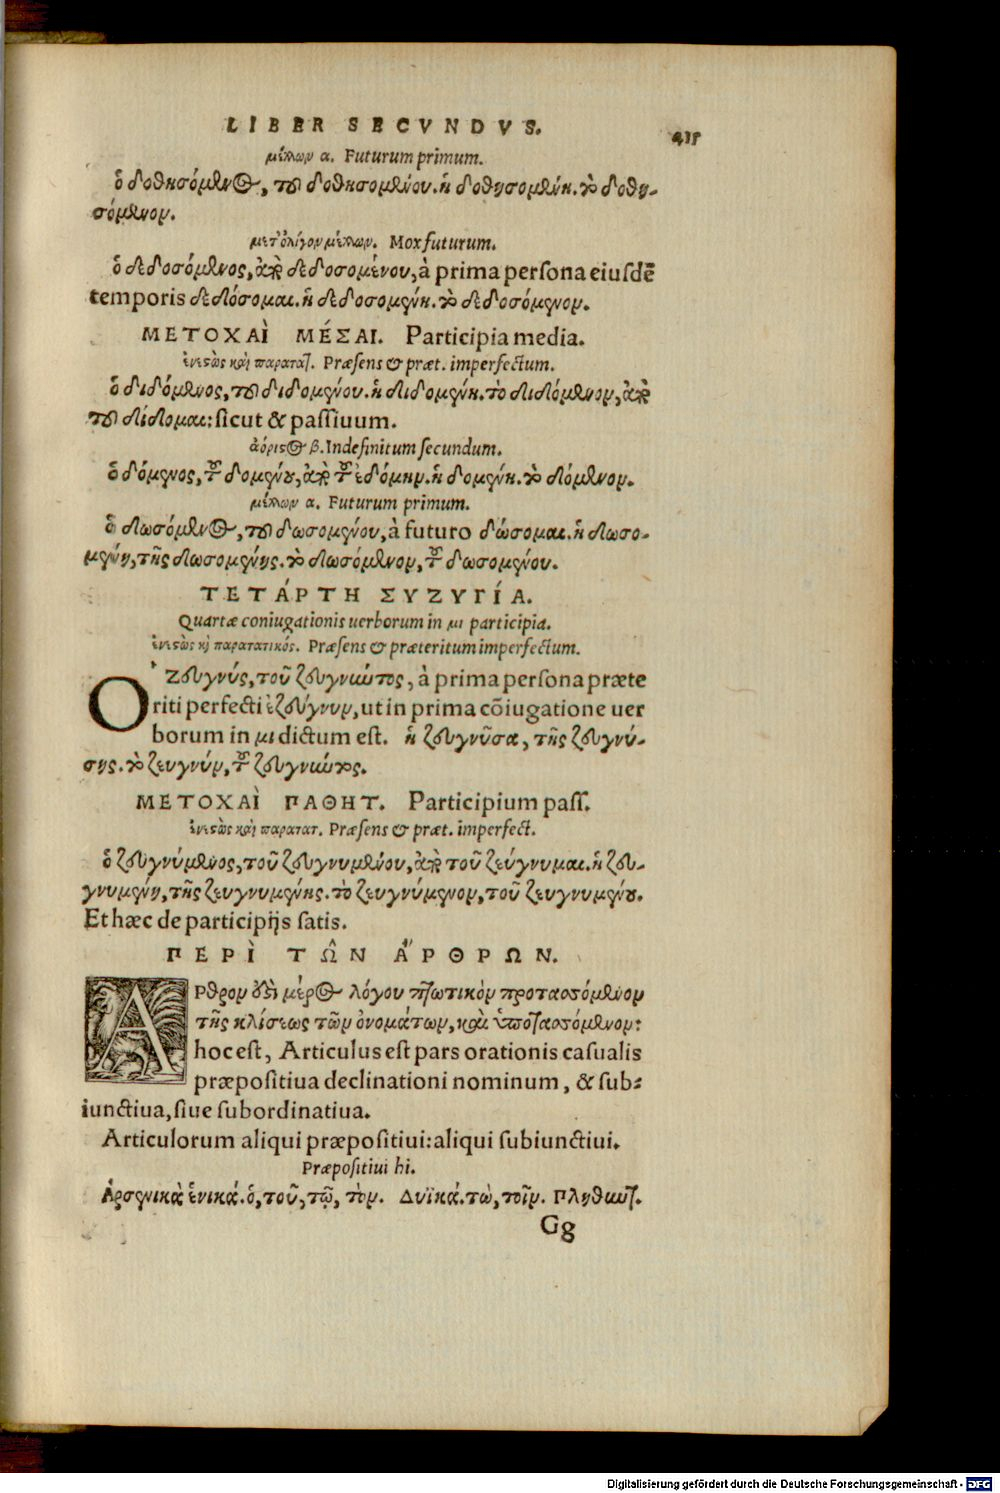 LIBER SECVNDVS.
μέλλων α. Futurum primum.
ὁ δοθησόμενος, τοῦ δοθησομένου. ἡ δοθησομένη. τὸ δοθη-
σόμενον.
μετ' ὀλίγον μέλλων. Mox futurum.
ὁ δεδοσόμενος, ἀπὸ δεδοσομένου, à prima persona eiusdē
temporis δεδόσομαι. ἡ δεδοσομένη. τὸ δεδοσόμενον.
ΜΕΤΟΧΑῚ ΜΈΣΑΙ. Participia media.
ἐνεστὼς καὶ παρατατ. Præsens & præt. imperfectum.
ὁ διδόμενος, τοῦ διδομένου. ἡ διδομένη. τὸ διδόμενον, ἀπὸ
τοῦ δίδομαι: sicut & passiuum.
ἀόριστος β. Indefinitum secundum.
ὁ δόμενος, τοῦ δομένου, ἀπὸ τοῦ ἐδόμην. ἡ δομένη. τὸ δόμενον.
μέλλων α. Futurum primum.
ὁ δωσόμενος, τοῦ δωσομένου, à futuro δώσομαι. ἡ δωσο-
μένη, τῆς δωσομένης. τὸ δωσόμενον, τοῦ δωσομένου.
ΤΕΤΆΡΤΗ ΣΥΖΥΓΊΑ.
Quartæ coniugationis uerborum in μι participia.
ἐνεστὼς κὶ παρατατικός. Præsens & præteritum imperfectum.
Ὁ ζευγνύς, τοῦ ζευγνύντος, à prima persona præte
riti perfecti ἐζεύγνυν, ut in prima cōiugatione uer
borum in μι dictum est. ἡ ζευγνῦσα, τῆς ζευγνύ-
σης. τὸ ζευγνύν, τοῦ ζευγνύντος.
ΜΕΤΟΧΑῚ ΠΑΘΗΤ. Participium pass.
ἐνεστὼς καὶ παρατατ. Præsens & præt. imperfect.
ὁ ζευγνύμενος, τοῦ ζευγνυμένου, ἀπὸ τοῦ ζεύγνυμαι. ἡ ζευ-
γνυμένη, τῆς ζευγνυμένης. τὸ ζευγνύμενον, τοῦ ζευγνυμένου.
Et hæc de participijs satis.
ΠΕΡῚ ΤΩ͂Ν ἌΡΘΡΩΝ.
Αρθρον ἐστὶ μέρος λόγου πτωτικὸν προτασσόμενον
τῆς κλίσεως τῶν ὀνομάτων, καὶ ὑποτασσόμενον:
hoc est, Articulus est pars orationis casualis
præpositiua declinationi nominum, & sub-
iunctiua, siue subordinatiua.
Articulorum aliqui præpositiui: aliqui subiunctiui.
Præpositiui hi.
Ἀρσενικὰ ἑνικά. ὁ, τοῦ, τῷ, τὸν. Δυϊκά. τὼ, τοῖν. Πληθωτ.
Gg
Digitalisierung gefördert durch die Deutsche Forschungsgemeinschaft - DFG